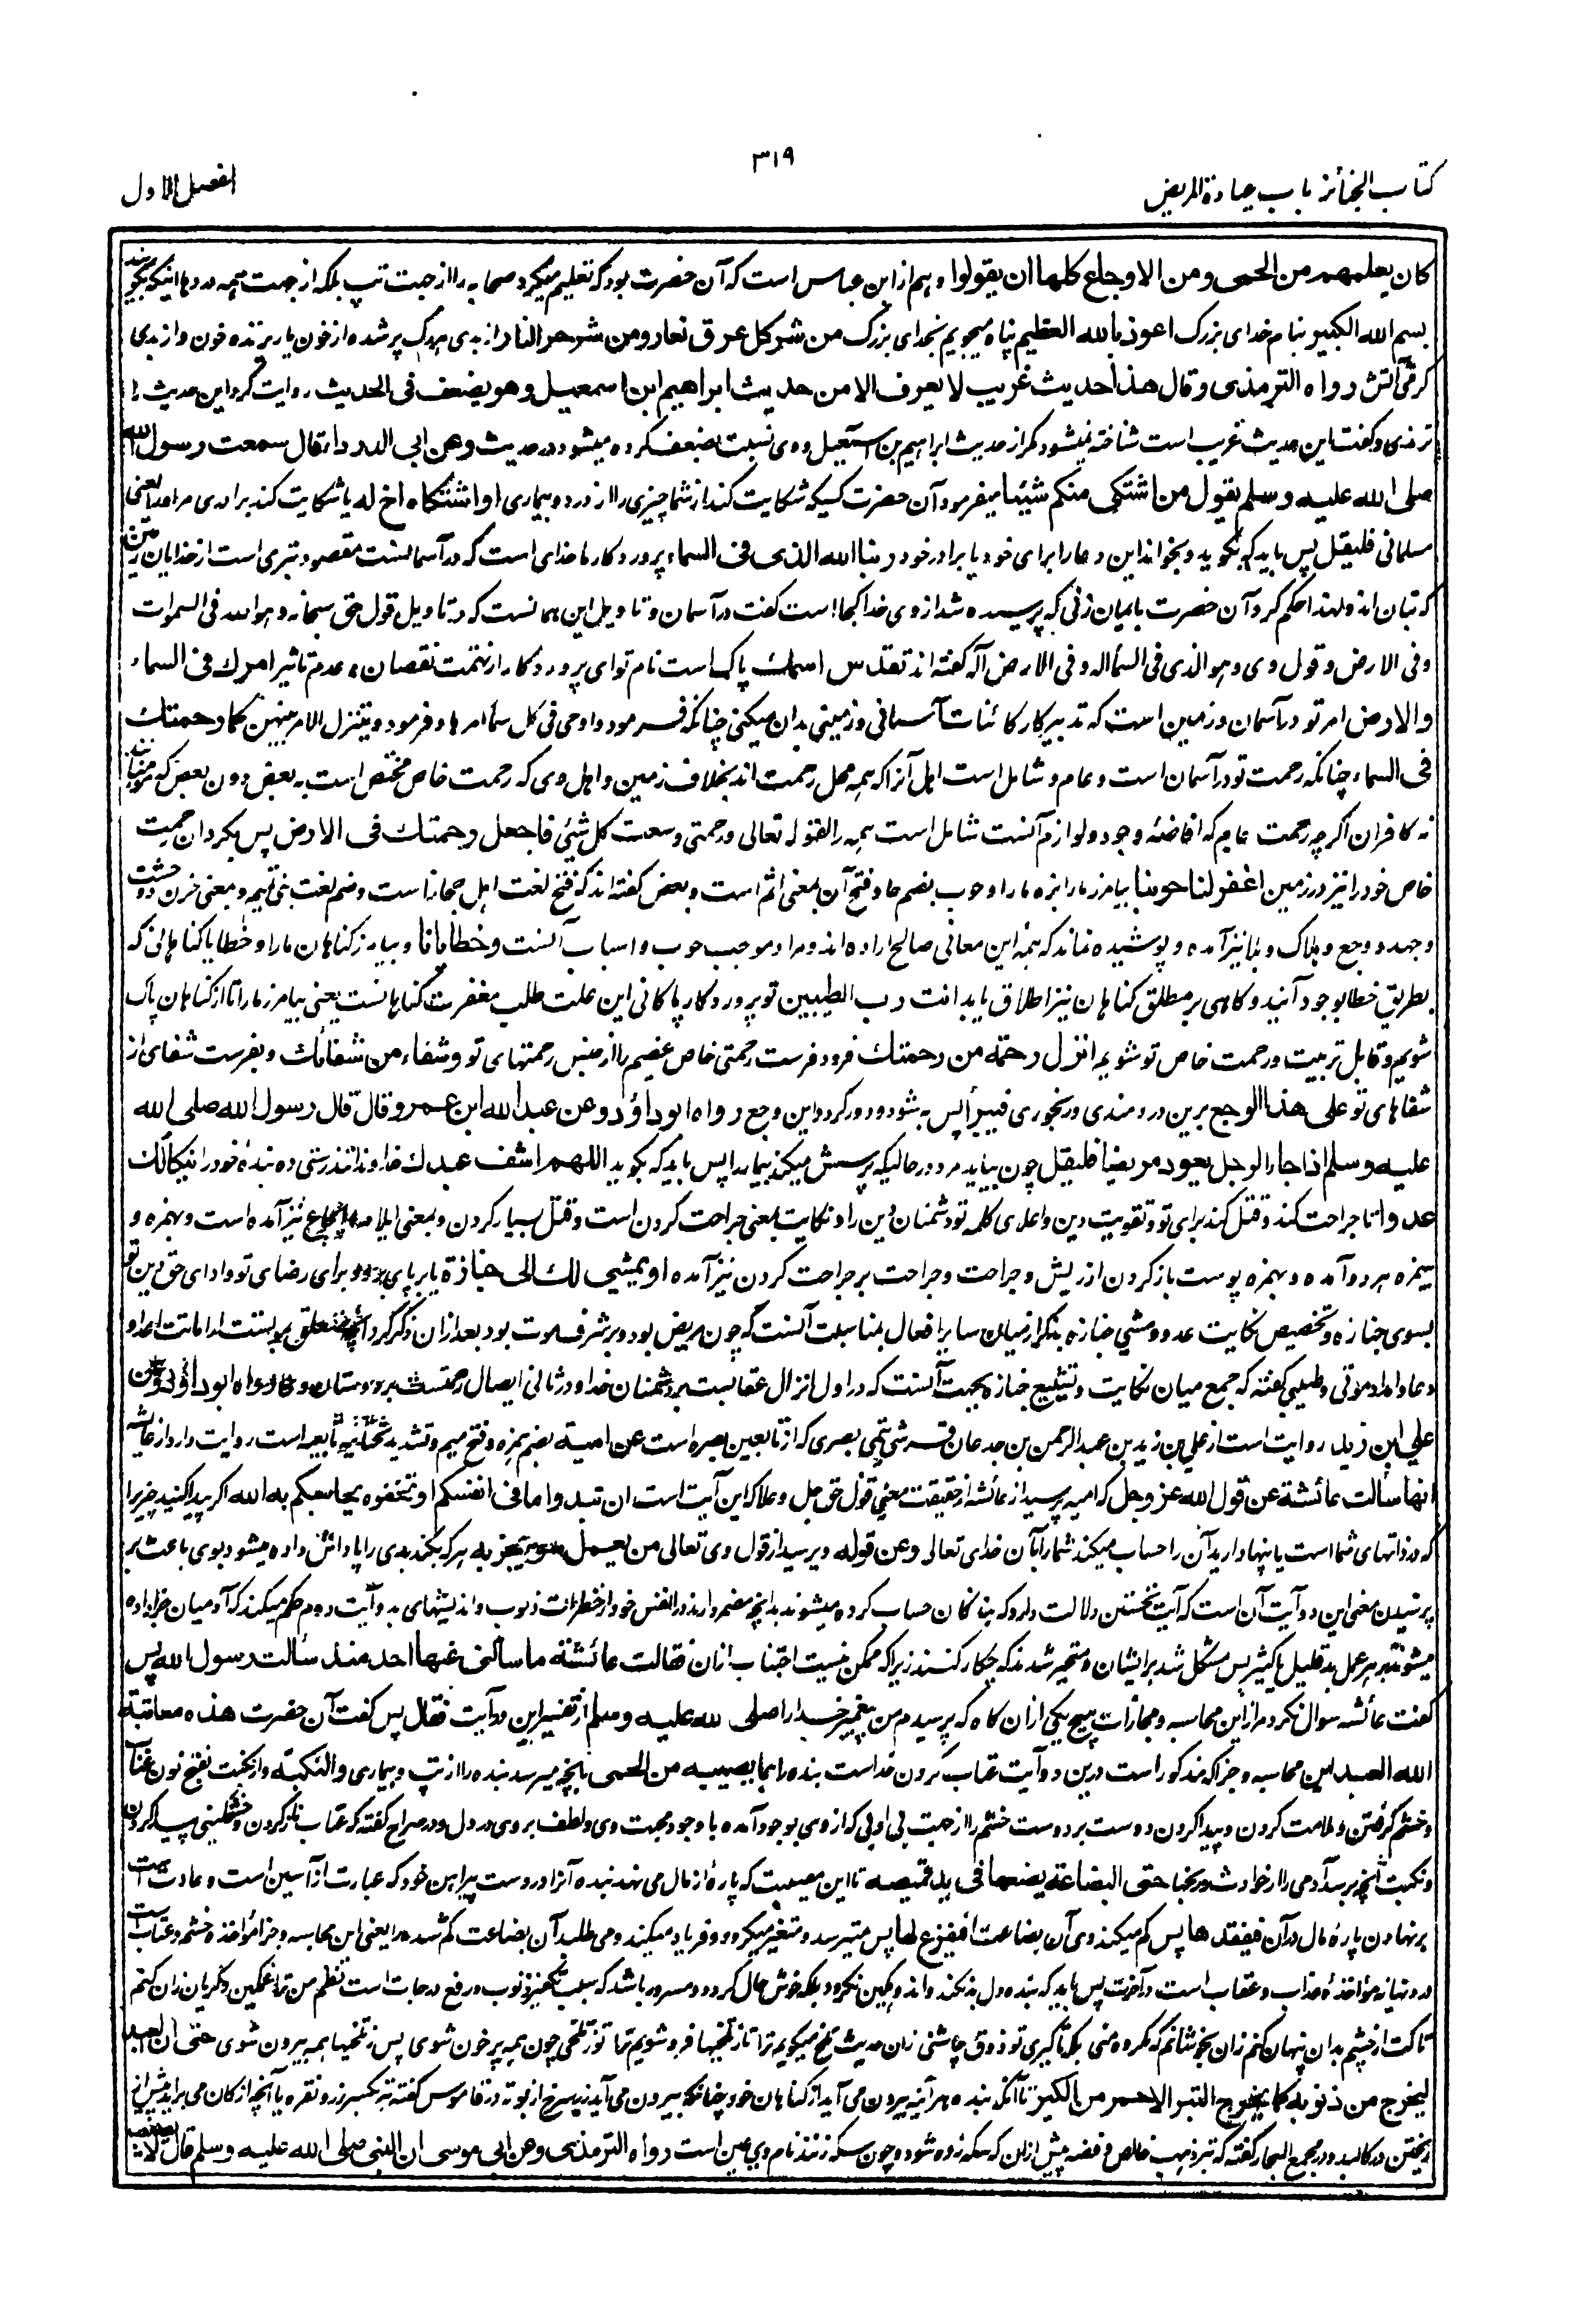 ۳۱۹
کتاب الجنائز باب عیادة المریض
الفصل الاول
کان یعلمهم من الحمی ومن الاوجاع کلها ان یقولوا وهم از ابن عباس است که آن حضرت بود که تعلیم میکرد صحابه را از جهت تپ بلکه از جهت همه دردها اینکه بگویند
بسم الله الکبیر بنام خدای بزرگ اعوذ بالله العظیم پناه میجویم بخدای بزرگ من شر کل عرق نعار ومن شر حر النار از بدی هر رگ پر شده از خون یا ریزنده خون و از بدی
گرمی آتش رواه الترمذی وقال هذا حدیث غریب لا یعرف الا من حدیث ابراهیم ابن اسمعیل وهو یضعف فی الحدیث روایت کرد این حدیث را
ترمذی و گفت این حدیث غریب است شناخته نمیشود مگر از حدیث ابراهیم بن اسمعیل و وی نسبت بضعف کرده میشود در حدیث وعن ابی الدرداء قال سمعت رسول الله
صلی الله علیه وسلم یقول من اشتکی منکم شیئا میفرمود آن حضرت کسیکه شکایت کند از شما چیزی را از درد و بیماری او اشتکاه اخ له یا شکایت کند برادری مر او را یعنی
مسلمانی فلیقل پس باید که بگوید و بخواند این دعا را برای خود یا برادر خود ربنا الله الذی فی السماء پروردگار ما خدای است که در آسمانست مقصود تبری است از خدایان زمین
که بتان اند ولهذا حکم کرد آن حضرت بایمان زنی که پرسیده شد از وی خدا کجا است گفت در آسمان و تاویل این همانست که در تاویل قول حق سبحانه وهو الله فی السموات
وفی الارض و قول وی وهو الذی فی السماء اله وفی الارض اله گفته اند تقدس اسمك پاک است نام تو ای پروردگار از سمت نقصان و عدم تاثیر امرك فی السماء
والارض امر تو در آسمان و زمین است که تدبیر کار کائنات آسمانی و زمینی بدان میکنی چنانکه فرمود واوحی فی کل سماء امرها و فرمود ویتنزل الامر بینهن کما رحمتك
فی السماء چنانکه رحمت تو در آسمان است و عام و شامل است اهل آنرا که همه محل رحمت اند بخلاف زمین و اهل وی که رحمت خاص مختص است به بعض دون بعض که مؤمنانند
نه کافران اگرچه رحمت عام که افاضهٔ وجود و لوازم آنست شامل است همه را لقوله تعالی ورحمتی وسعت کل شیئ فاجعل رحمتك فی الارض پس بگردان رحمت
خاص خود را نیز در زمین اغفر لنا حوبنا بیامرز ما را بزه ما را و حوب بضم حا و فتح آن بمعنی اثم است و بعض گفته اند که فتح لغت اهل حجاز است و ضم لغت بنی تمیم و بمعنی حزن و وحشت
و جهد و وجع و هلاک و بلا نیز آمده و پوشیده نماند که همه این معانی صالح اراده اند و مراد موجب حوب و اسباب آنست وخطایانا و بیامرز گناهان ما را و خطایا گناهانی که
بطریق خطا بوجود آیند و گاهی بر مطلق گناهان نیز اطلاق یابد انت رب الطیبین تو پروردگار پاکانی این علت طلب مغفرت گناهانست یعنی بیامرز ما را تا از گناهان پاک
شویم و قابل تربیت و رحمت خاص تو شویم انزل رحمة من رحمتك فرود فرست رحمتی خاص عظیم را از جنس رحمتهای تو وشفاء من شفائك و بفرست شفای از
شفاهای تو علی هذا الوجع برین دردمندی و رنجوری فیبرأ پس به شود و دور گردد این وجع رواه ابو داؤد وعن عبد الله ابن عمرو قال قال رسول الله صلی الله
علیه وسلم اذا جاء الرجل یعود مریضا فلیقل چون بیاید مرد در حالیکه پرسش میکند بیمار را پس باید که بگوید اللهم اشف عبدك خداوندا تندرستی ده بندهٔ خود را ینکألك
عدوا تا جراحت کند و قتل کند برای تو و تقویت دین و اعلای کلمه تو دشمنان دین را و نکایت بمعنی جراحت کردن است و قتل بسیار کردن و بمعنی ایلام نیز آمده است و بهمزه و
بیهمزه هر دو آمده و بهمزه پوست باز کردن از ریش و جراحت و جراحت بر جراحت کردن نیز آمده او یمشی لك الی جنازة یا بر پای رود برای رضای تو و ادای حق دین تو
بسوی جنازه و تخصیص نکایت عدو و مشی جنازه بذکر از میان سایر افعال بمناسبت آنست که چون مریض بود و بر شرف موت بود بعد ازان ذکر کرد آنچه متعلق بموتست از اماتت اعدا و
دعا و امداد موتی و طیبی گفته که جمع میان نکایت و تشییع جنازه بجهت آنست که در اول انزال عقابست بر دشمنان خدا و در ثانی ایصال رحمتست بر دوستان وی رواه ابو داؤد وعن
علی ابن زید روایت است از علی بن زید بن عبد الرحمن بن جدعان قرشی تیمی بصری که از تابعین بصره است عن امیة بضم همزه و فتح میم و تشدید تحتانیه تابعیه است روایت دارد از عائشه
انها سألت عائشة عن قول الله عز وجل که امیه پرسید از عائشه از حقیقت معنی قول حق جل و علا که این آیت است ان تبدوا ما فی انفسکم او تخفوه یحاسبکم به الله اگر پیدا کنید چیزیرا
که در ذاتهای شما است یا پنهان دارید آن را حساب میکند شما را بآن خدای تعالی وعن قوله و پرسید از قول وی تعالی من یعمل سوءا یجز به هر که بکند بدی را پاداش داده میشود بوی باعث بر
پرسیدن معنی این دو آیت آن است که آیت نخستین دلالت دارد که بندگان حساب کرده میشوند بدانچه مضمر دارند در انفس خود از خطرات ذنوب و اندیشهای بد و آیت دوم حکم میکند که آدمیان جزا داده
میشوند بر هر عمل بد قلیل یا کثیر پس مشکل شد بر ایشان و متحیر شدند که چکار کنند زیرا که ممکن نیست اجتناب ازان فقالت عائشة ما سألنی عنها احد منذ سألت رسول الله پس
گفت عائشه سوال نکرد مرا از این محاسبه و مجازات هیچ یکی ازان گاه که پرسیدم من پیغمبر خدا را صلی الله علیه وسلم از تفسیر این دو آیت فقال پس گفت آن حضرت هذه معاتبة
الله العبد این محاسبه و جزا که مذکور است درین دو آیت عتاب کردن خداست بنده را بما یصیبه من الحمی بآنچه میرسد بنده را از تپ و بیماری والنکبة و از نکبت بفتح نون عتاب
و خشم گرفتن و ملامت کردن و پیدا کردن دوست بر دوست خشم را از جهت بی ادبی که از وی بوجود آمده با وجود محبت وی و لطف بر وی در دل و در صراح گفته که عتاب ناز کردن و خشمگینی پیدا کردن
و نکبت آنچه برسد آدمی را از حوادث و رنجها حتی البضاعة یضعها فی ید قمیصه تا این مصیبت که پارهٔ از مال می نهد بنده آنرا در دست پیراهن خود که عبارت از آستین است و عادت است
بر نهادن پاره مال در آن فیفقدها پس گم میکند وی آن بضاعت را فیفزع لها پس میترسد و متغیر میگردد و فریاد میکند و می طلبد آن بضاعت گم شده را یعنی این محاسبه و جزا مؤاخذه خشم و عتاب است
در دنیا نه مؤاخذهٔ عذاب و عقاب است در آخرت پس باید که بنده دل بد نکند و اندوهگین نگردد بلکه خوش حال گردد و مسرور باشد که سبب تکفیر ذنوب و رفع درجات است نظم من ترا غمگین و گریان زان کنم
تا کت از چشم بدان پنهان کنم زان بجوشانم که مکروه منی بلکه تا گیری تو ذوق چاشنی زان حدیث تلخ میگویم ترا تا ز تلخیها فرو شویم ترا تو ز تلخی چون همه پر خون شوی پس ز تلخیها همه بیرون شوی حتی ان العبد
لیخرج من ذنوبه کما یخرج التبر الاحمر من الکیر تا آنکه بنده هر آینه بیرون می آید از گناهان خود چنانکه بیرون می آید زر سرخ از بوته و در قاموس گفته تبر بکسر زر و نقره یا آنچه از کان می برآید پیش از
ریختن در کالبد و در مجمع البحار گفته که تبر ذهب خالص و فضه پیش ازان که سکه زده شود و چون سکه زنند نام وی عین است رواه الترمذی وعن ابی موسی ان النبی صلی الله علیه وسلم قال لا یصیب